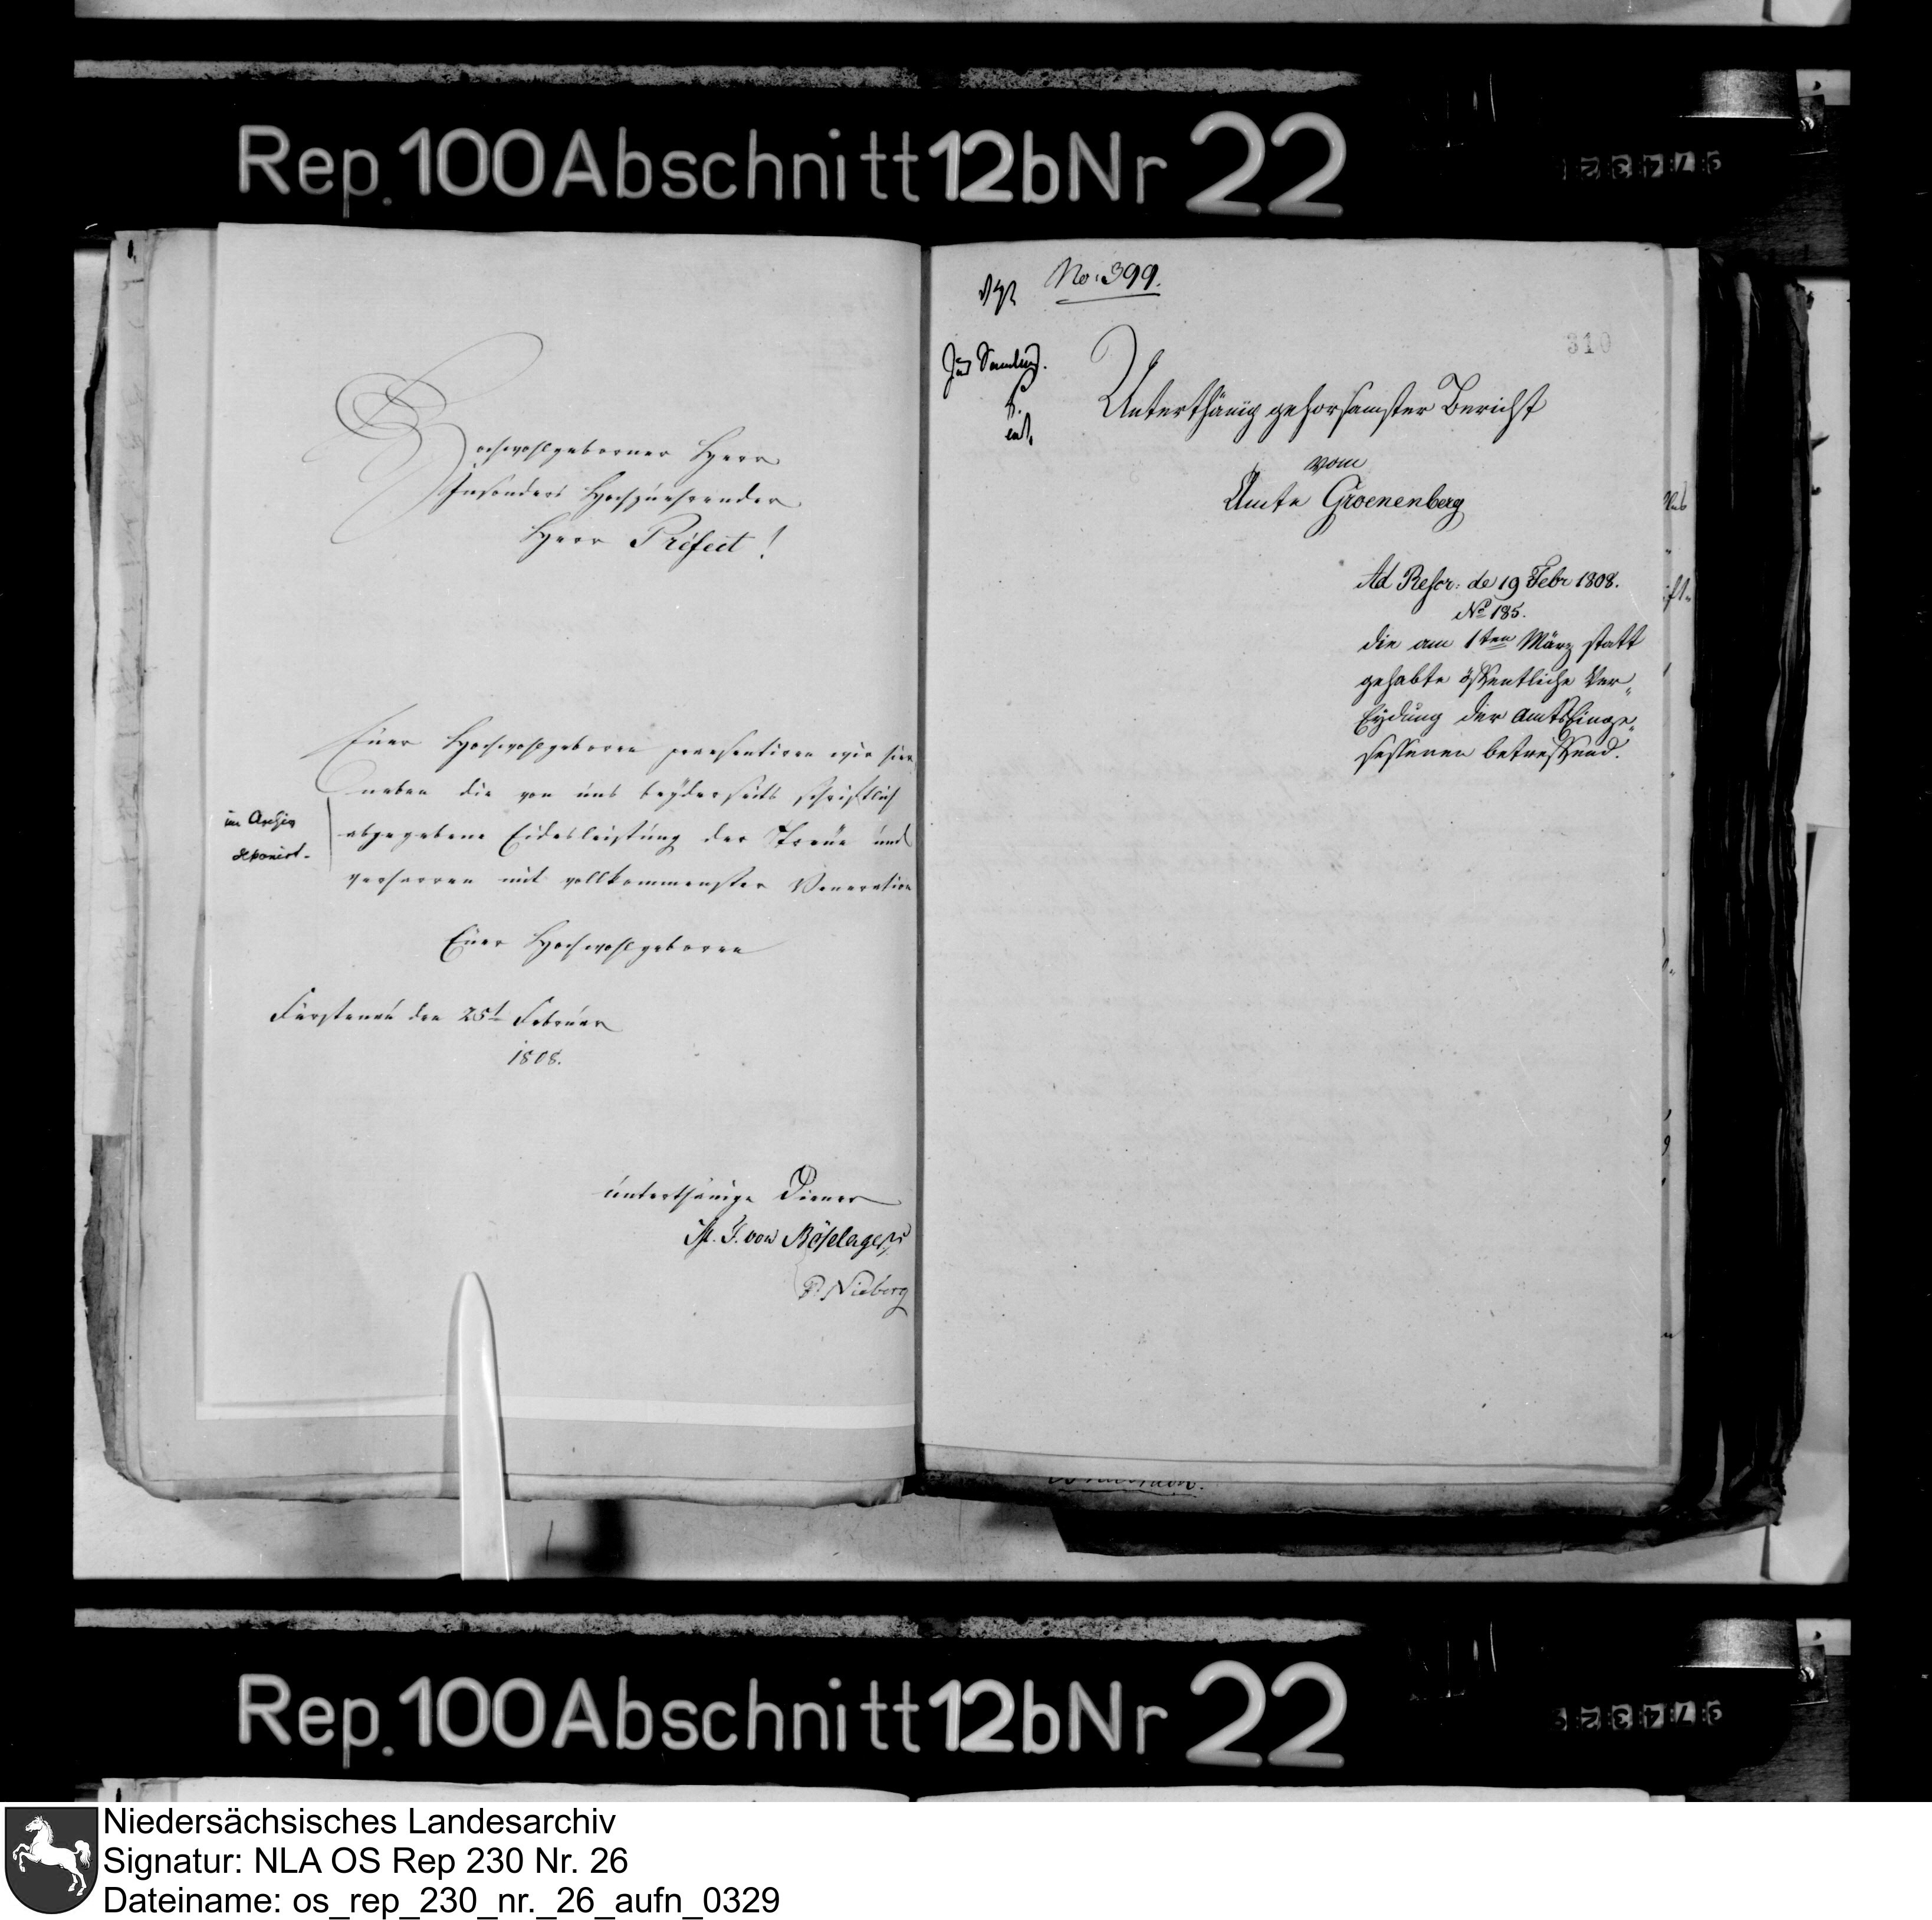 Rep. 100 Abschnitt 12b Nr 22
Hochwohlgeborner Herr
Insonders Hochzuehrender
Herr Präfect!
Euer Hochwohlgeboren praesentiren wir hier
neben die von uns beyderseits schriftlich
abgegebene Eidesleistung der Treue und
verharren mit vollkommenster Veneration
im Archiv
deponirt.
Euer Hochwohlgeboren
Fürstenau den 25t Februar
1808.
unterthänige Diener
von Böselager
Nieberg
No: 399.
310
Unterthänig gehorsamster Bericht
vom
Amte Groenenberg
Ad Rescr: de 19 Febr 1808.
No 185.
die am 1ten März statt
gehabte öffentliche Ver„
Eydung der Amts Einge„
sessenen betreffend.
Rep. 100 Abschnitt 12b Nr 22
Niedersächsisches Landesarchiv
Signatur: NLA OS Rep 230 Nr. 26
Dateiname: os_rep_230_nr._26_aufn_0329